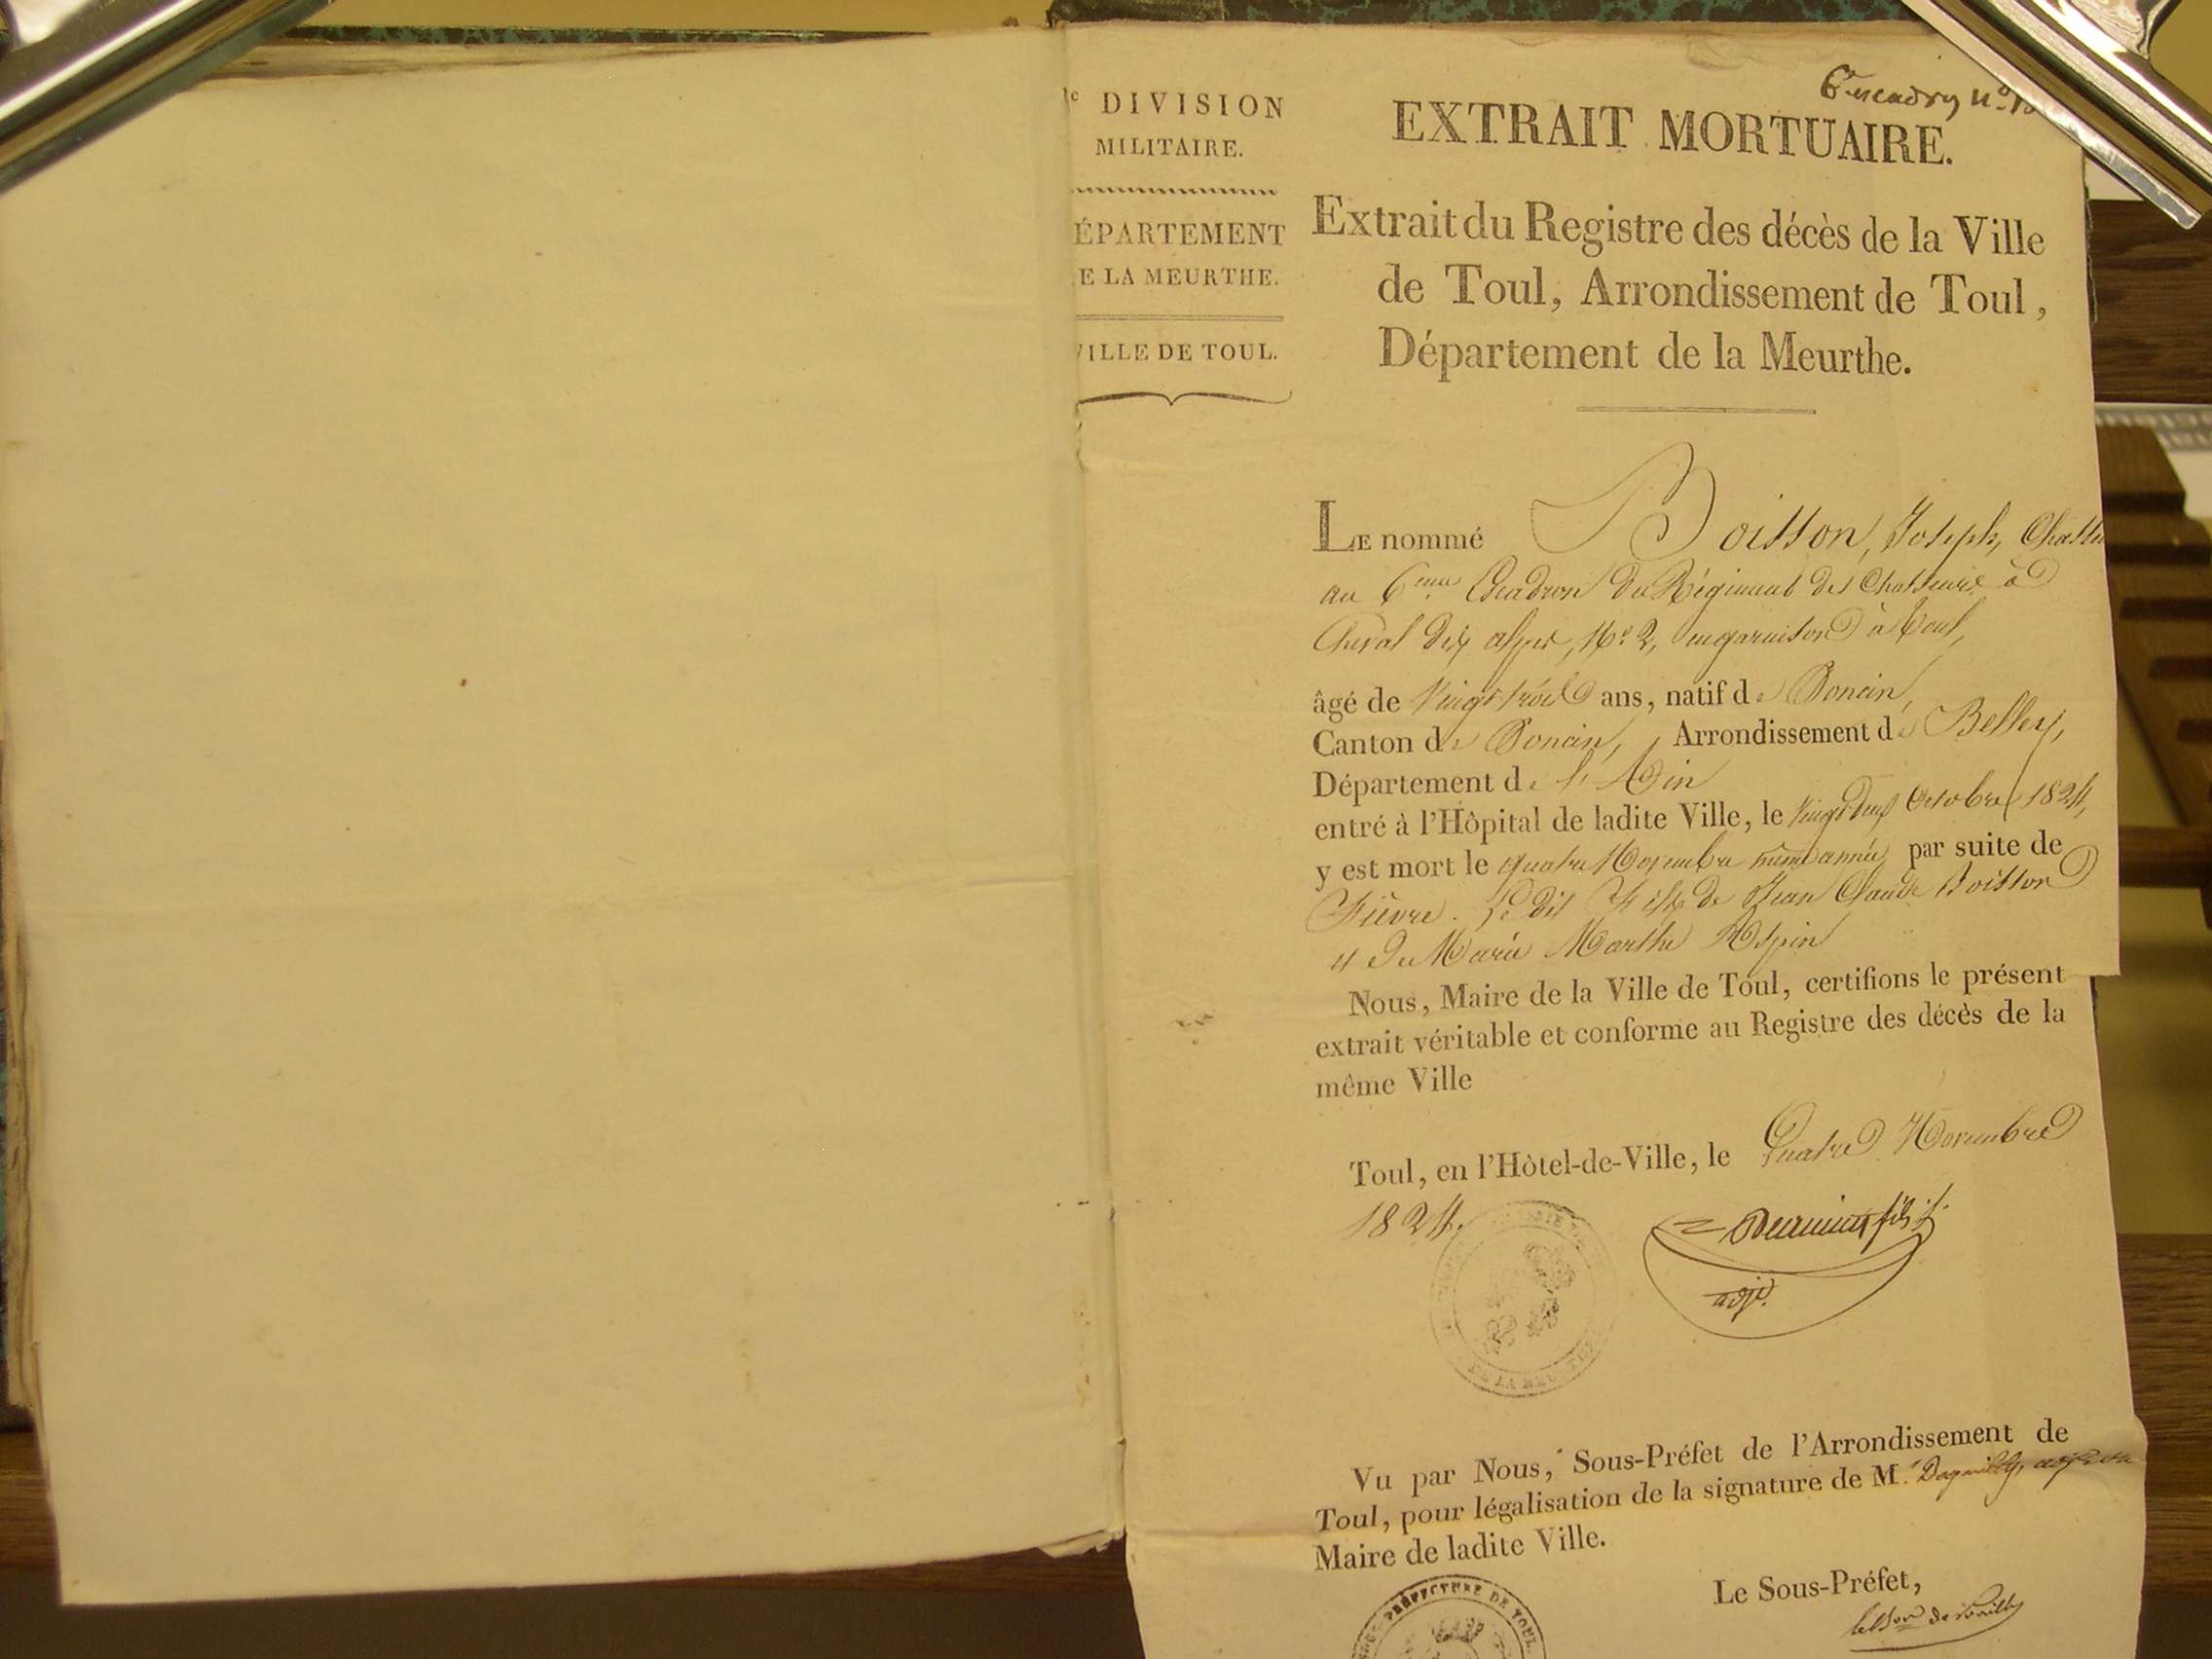 DIVISION
MILITAIRE.
ÉPARTEMENT
E LA MEURTHE.
VILLE DE TOUL.
EXTRAIT MORTUAIRE.
Extrait du Registre des décès de la Ville
de Toul, Arrondissement de Toul,
Département de la Meurthe.
LE nommé Boisson, Joseph, Chass
au 6eme Escadron du Régiment des Chasseurs à
Cheval des alpes, No 2, en garnison à Toul,
âgé de Vingt trois ans, natif de Poncin,
Canton de Poncin, Arrondissement de Belley,
Département de l'Ain
entré à l'Hôpital de ladite Ville, le Vingt deux Octobre 1824,
y est mort le quatre Novembre même année par suite de
Fièvre. Le dit Fils de Jean Claude Boisson
et de Marie Marthe
Nous, Maire de la Ville de Toul, certifions le présent
extrait véritable et conforme au Registre des décès de la
même Ville
Toul, en l'Hôtel-de-Ville, le Quatre Novembre
1824.
fils
adjt.
DE LA MEURTHE
Vu par Nous, Sous-Préfet de l'Arrondissement de
Toul, pour légalisation de la signature de M.r
Maire de ladite Ville.
Le Sous-Préfet,
PRÉFECTURE DE TOUL